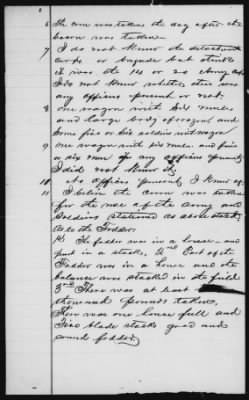 6 The corn was taken the day after the
bacon was taken
7 I do not know the detachment
corps or brigade but think
it was the 14 or 20 Army Corps
I do not know whether there was
any officers present or not
8 one wagon with six mules
and large body of
some five or six soldiers with wagon
9 one wagon with six mules and five
or six men if any officers present
I did not know it
10 No officers present I know of
11 I believe the corn was taken
for the use of the army and
soldiers stationed as above stated
As to the Fodder
1st The fodder was in a house and
part in a stack, 2nd Part of the
Fodder was in a house and the
balance was stacked in the field
3rd There was at least
thousand pounds taken,
There was one house full and
Five blade stacks good and
sound fodder